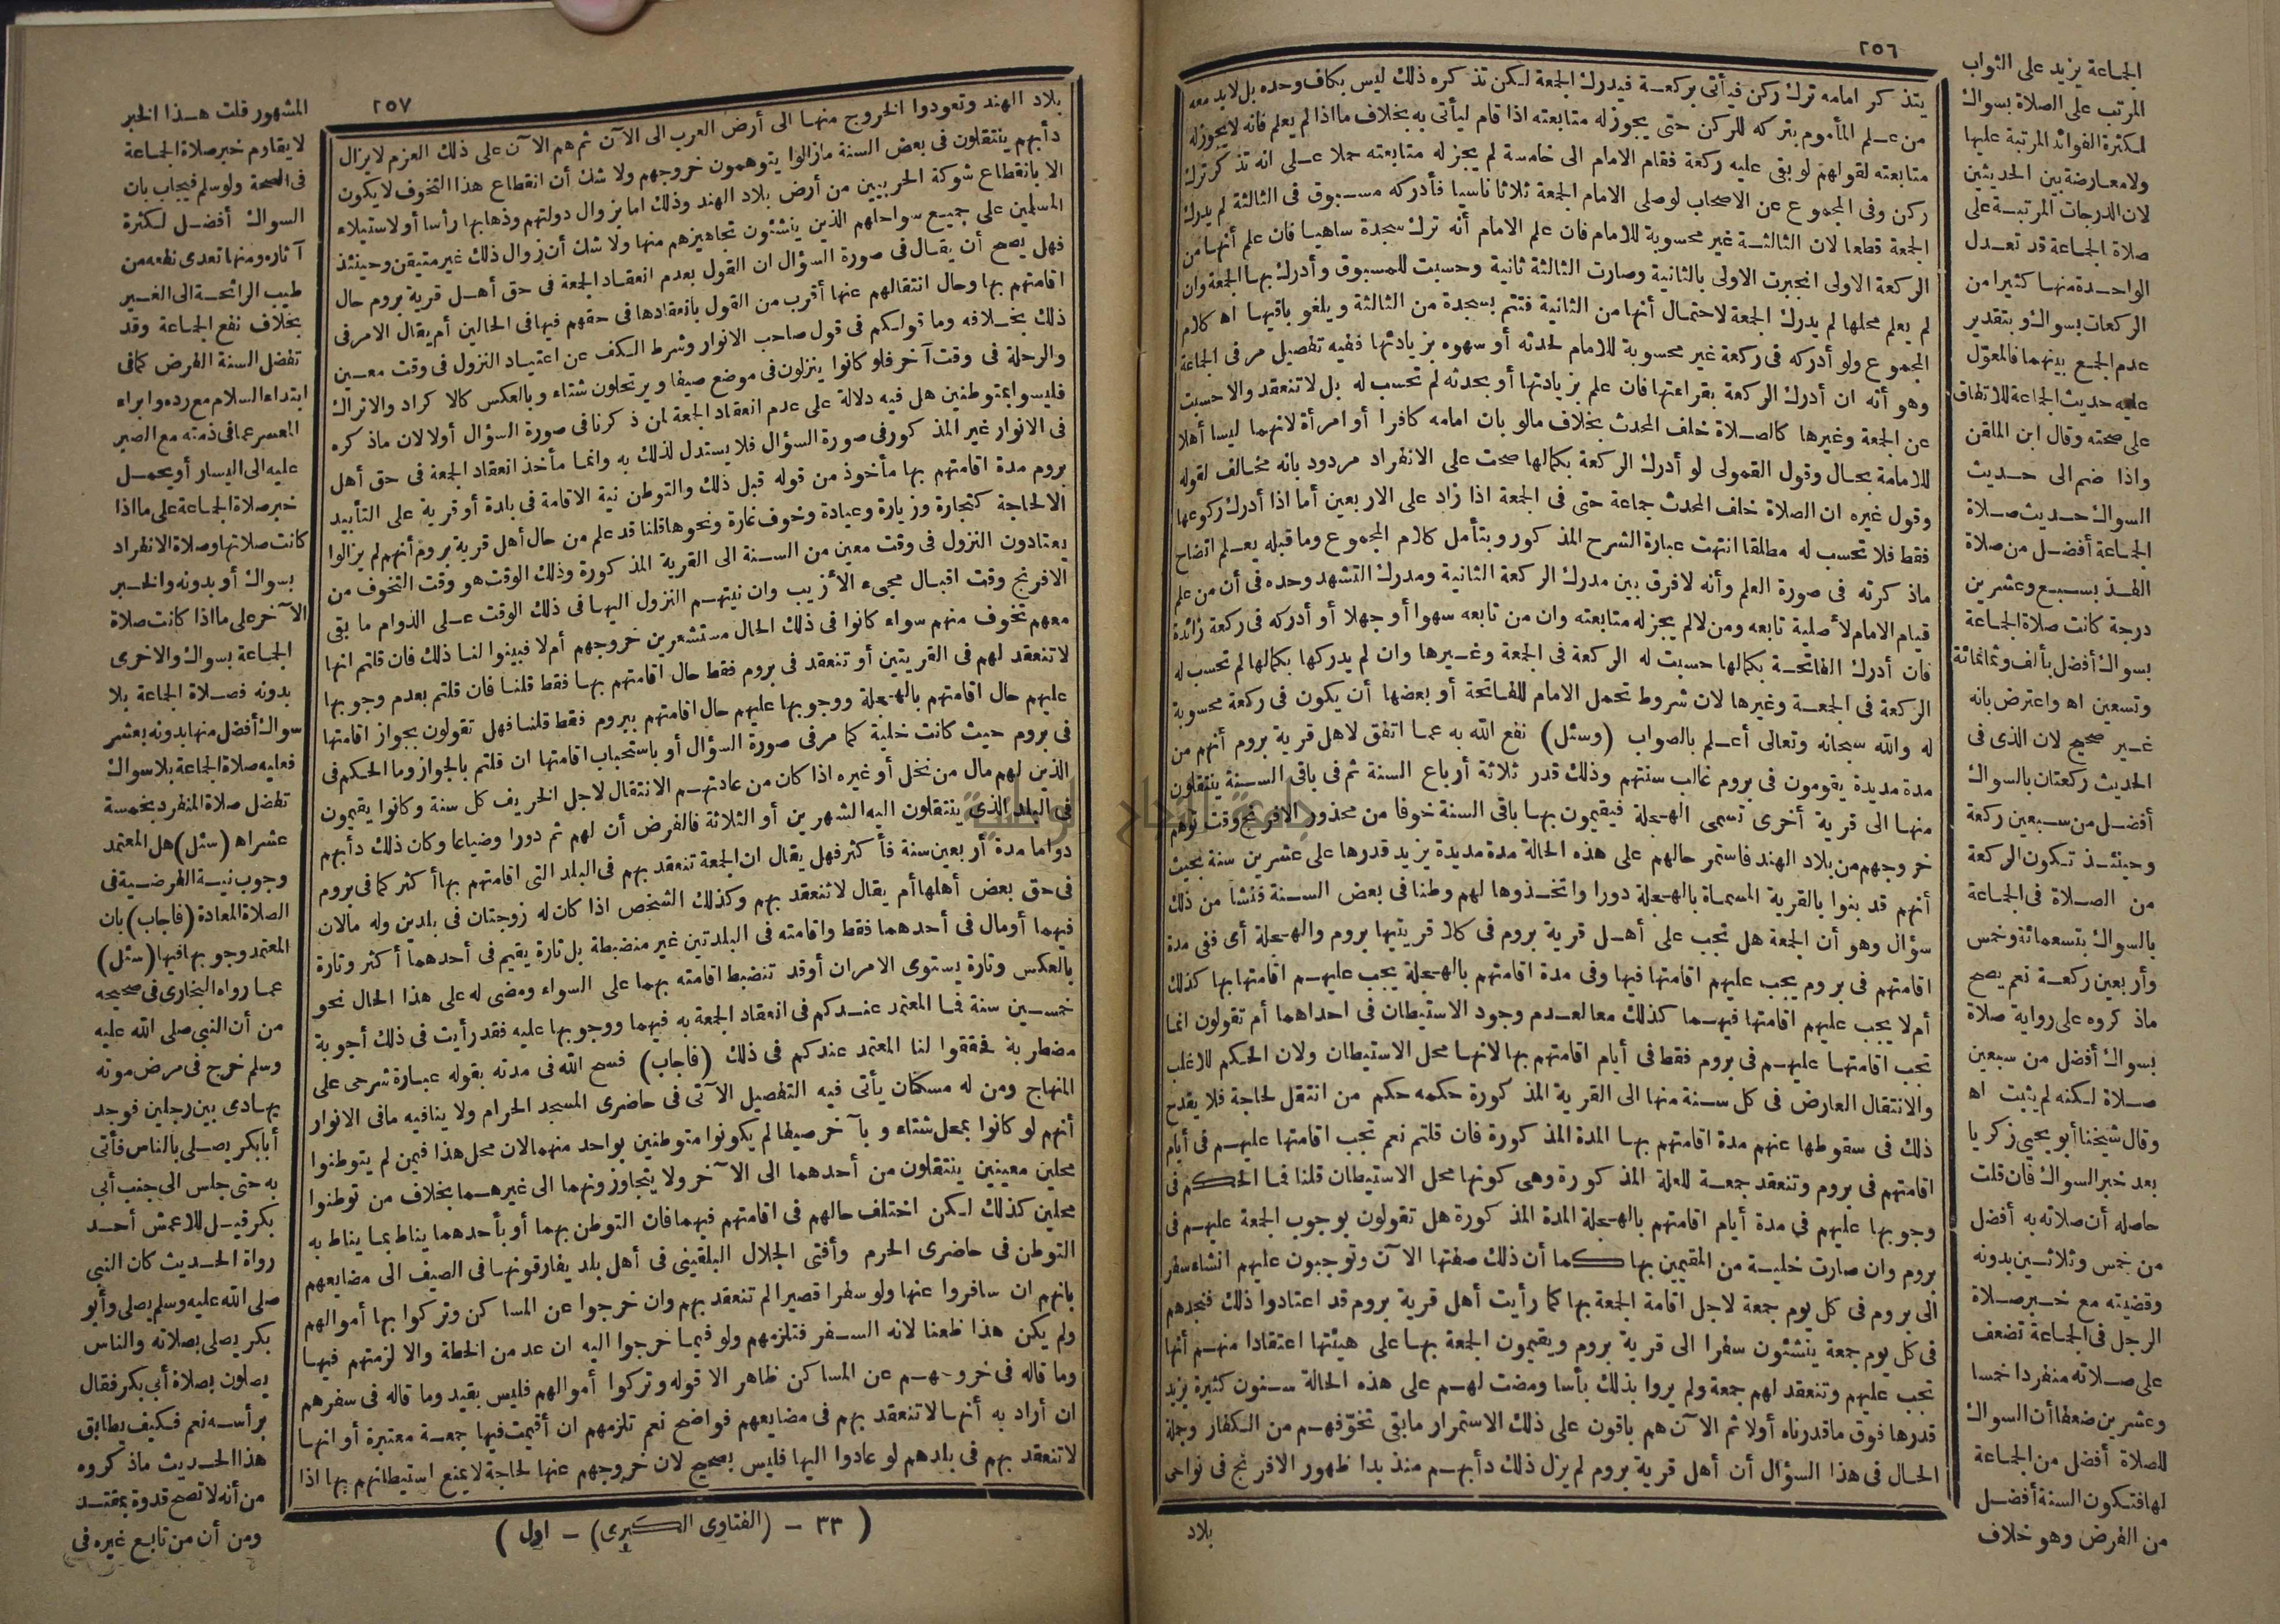 ٢٥٦
يتذكر امامه ترك ركن فيأتى بركعة فيدرك الجمعة لكن تذكره ذلك ليس بكاف وحده بل لابد معه
من علم المأموم بتركه للركن حتى يجوز له متابعته اذا قام ليأتى به بخلاف ما اذا لم يعلم فانه لا يجوز له
متابعته لقولهم لو بقى عليه ركعة فقام الامام الى خامسة لم يجز له متابعته حملا على انه تذكر ترك
ركن وفى المجموع عن الاصحاب لو صلى الامام الجمعة ثلاثا ناسيا فأدركه مسبوق فى الثالثة لم يدرك
الجمعة قطعا لان الثالثة غير محسوبة للامام فان علم الامام أنه ترك سجدة ساهيا فان علم أنها من
الركعة الاولى انجبرت الاولى بالثانية وصارت الثالثة ثانية وحسبت للمسبوق وأدرك بها الجمعة وان
لم يعلم محلها لم يدرك الجمعة لاحتمال أنها من الثانية فتتم بسجدة من الثالثة ويلغو باقيها اه كلام
المجموع ولو أدركه فى ركعة غير محسوبة للامام لحدثه أو سهوه بزيادتها ففيه تفصيل مر فى الجماعة
وهو أنه ان أدرك الركعة بقراءتها فان علم بزيادتها أو بحدثه لم تحسب له بل لا تنعقد والا حسبت
عن الجمعة وغيرها كالصلاة خلف المحدث بخلاف مالو بان امامه كافرا أو امرأة لانهما ليسا أهلا
للامامة بحال وقول القمولى لو أدرك الركعة بكمالها صحت على الانفراد مردود بانه مخالف لقوله
وقول غيره ان الصلاة خلف المحدث جماعة حتى فى الجمعة اذا زاد على الاربعين أما اذا أدرك ركوعها
فقط فلا تحسب له مطلقا انتهت عبارة الشرح المذكور وبتأمل كلام المجموع وما قبله يعلم اتضاح
ماذكرته فى صورة العلم وأنه لا فرق بين مدرك الركعة الثانية ومدرك التشهد وحده فى أن من علم
قيام الامام لأصلية تابعه ومن لا لم يجز له متابعته وان من تابعه سهوا أو جهلا أو أدركه فى ركعة زائدة
فان أدرك الفاتحة بكمالها حسبت له الركعة فى الجمعة وغيرها وان لم يدركها بكمالها لم تحسب له
الركعة فى الجمعة وغيرها لان شروط تحمل الامام للفاتحة أو بعضها أن يكون فى ركعة محسوبة
له والله سبحانه وتعالى أعلم بالصواب (وسئل) نفع الله به عما اتفق لاهل قرية بروم أنهم من
مدة مديدة يقومون فى بروم غالب سنتهم وذلك قدر ثلاثة أرباع السنة ثم فى باقى السنة ينتقلون
منها الى قرية أخرى تسمى الهجلة فيقيمون بها باقى السنة خوفا من محذور الافرنج وقت توهم
خروجهم من بلاد الهند فاستمر حالهم على هذه الحالة مدة مديدة يزيد قدرها على عشرين سنة بحيث
أنهم قد بنوا بالقرية المسماة بالهجلة دورا واتخذوها لهم وطنا فى بعض السنة فنشأ من ذلك
سؤال وهو أن الجمعة هل تجب على أهل قرية بروم فى كلا قريتيها بروم والهجلة أى ففى مدة
اقامتهم فى بروم يجب عليهم اقامتها فيها وفى مدة اقامتهم بالهجلة يجب عليهم اقامتها بها كذلك
أم لا يجب عليهم اقامتها فيهما كذلك معا لعدم وجود الاستيطان فى احداهما أم تقولون انما
تجب اقامتها عليهم فى بروم فقط فى أيام اقامتهم بها لانها محل الاستيطان ولان الحكم للاغلب
والانتقال العارض فى كل سنة منها الى القرية المذكورة حكمه حكم من انتقل لحاجة فلا يقدح
ذلك فى سقوطها عنهم مدة اقامتهم بها المدة المذكورة فان قلتم نعم تجب اقامتها عليهم فى أيام
اقامتهم فى بروم وتنعقد جمعة للعلة المذكورة وهى كونها محل الاستيطان قلنا فما الحكم فى
وجوبها عليهم فى مدة أيام اقامتهم بالهجلة المدة المذكورة هل تقولون بوجوب الجمعة عليهم فى
بروم وان صارت خلية من المقيمين بها كما أن ذلك صفتها الآن وتوجبون عليهم انشاء سفر
الى بروم فى كل يوم جمعة لاجل اقامة الجمعة بها كما رأيت أهل قرية بروم قد اعتادوا ذلك فنجدهم
فى كل يوم جمعة ينشئون سفرا الى قرية بروم ويقيمون الجمعة بها على هيئتها اعتقادا منهم أنها
تجب عليهم وتنعقد لهم جمعة ولم يروا بذلك بأسا ومضت لهم على هذه الحالة سنون كثيرة يزيد
قدرها فوق ماقدرناه أولا ثم الآن هم باقون على ذلك الاستمرار مابقى تخوّفهم من الكفار وجملة
الحال فى هذا السؤال أن أهل قرية بروم لم يزل ذلك دأبهم منذ بدا ظهور الافرنج فى نواحى
بلاد
الجماعة يزيد على الثواب
المرتب على الصلاة بسواك
لكثرة الفوائد المرتبة عليها
ولا معارضة بين الحديثين
لان الدرجات المرتبة على
صلاة الجماعة قد تعدل
الواحدة منها كثيرا من
الركعات بسواك وبتقدير
عدم الجمع بينهما فالمعوّل
عليه حديث الجماعة للاتفاق
على صحته وقال ابن الملقن
واذا ضم الى حديث
السواك حديث صلاة
الجماعة أفضل من صلاة
الفذ بسبع وعشرين
درجة كانت صلاة الجماعة
بسواك أفضل بألف وثمانمائة
وتسعين اه واعترض بانه
غير صحيح لان الذى فى
الحديث ركعتان بالسواك
أفضل من سبعين ركعة
وحينئذ تكون الركعة
من الصلاة فى الجماعة
بالسواك بتسعمائة وخمس
وأربعين ركعة نعم يصح
ماذكروه على رواية صلاة
بسواك أفضل من سبعين
صلاة لكنه لم يثبت اه
وقال شيخنا أبو يحيى زكريا
بعد خبر السواك فان قلت
حاصله أن صلاته به أفضل
من خمس وثلاثين بدونه
وقضيته مع خبر صلاة
الرجل فى الجماعة تضعف
على صلاته منفردا خمسا
وعشرين ضعفا أن السواك
للصلاة أفضل من الجماعة
لها فتكون السنة أفضل
من الفرض وهو خلاف
٢٥٧
بلاد الهند وتعودوا الخروج منها الى أرض العرب الى الآن ثم هم الآن على ذلك العزم لايزال
دأبهم ينتقلون فى بعض السنة مازالوا يتوهمون خروجهم ولا شك أن انقطاع هذا التخوف لايكون
الا بانقطاع شوكة الحربيين من أرض بلاد الهند وذلك اما بزوال دولتهم وذهابها رأسا أو لاستيلاء
المسلمين على جميع سواحلهم الذين ينشئون تجاهيزهم منها ولا شك أن زوال ذلك غير متيقن وحينئذ
فهل يصح أن يقال فى صورة السؤال ان القول بعدم انعقاد الجمعة فى حق أهل قرية بروم حال
اقامتهم بها وحال انتقالهم عنها أقرب من القول بانعقادها فى حقهم فيها فى الحالين أم يقال الامر فى
ذلك بخلافه وما قولكم فى قول صاحب الانوار وشرط المكف عن اعتياد النزول فى وقت معين
والرحلة فى وقت آخر فلو كانوا ينزلون فى موضع صيفا ويرتحلون شتاء وبالعكس كالاكراد والاتراك
فليسوا بمتوطنين هل فيه دلالة على عدم انعقاد الجمعة لمن ذكرنا فى صورة السؤال أولا لان ماذكره
فى الانوار غير المذكور فى صورة السؤال فلا يستدل لذلك به وانما مأخذ انعقاد الجمعة فى حق أهل
بروم مدة اقامتهم بها مأخوذ من قوله قبل ذلك والتوطن نية الاقامة فى بلدة أو قرية على التأبيد
الا لحاجة كتجارة وزيارة وعيادة وخوف غارة ونحوها قلنا قد علم من حال أهل قرية بروم أنهم لم يزالوا
يعتادون النزول فى وقت معين من السنة الى القرية المذكورة وذلك الوقت هو وقت التخوف من
الافرنج وقت اقبال مجىء الأزيب وان نيتهم النزول اليها فى ذلك الوقت على الدوام ما بقى
معهم تخوف منهم سواء كانوا فى ذلك الحال مستشعرين خروجهم أم لا فبينوا لنا ذلك فان قلتم انها
لا تنعقد لهم فى القريتين أو تنعقد فى بروم فقط حال اقامتهم بها فقط قلنا فان قلتم بعدم وجوبها
عليهم حال اقامتهم بالهجلة ووجوبها عليهم حال اقامتهم ببروم فقط قلنا فهل تقولون بجواز اقامتها
فى بروم حيث كانت خلية كما مر فى صورة السؤال أو باستحباب اقامتها ان قلتم بالجواز وما الحكم فى
الذين لهم مال من نخل أو غيره اذا كان من عادتهم الانتقال لاجل الخريف كل سنة وكانوا يقيمون
فى البلد الذى ينتقلون اليه الشهرين أو الثلاثة فالفرض أن لهم ثم دورا وضياعا وكان ذلك دأبهم
دواما مدة أربعين سنة فأكثر فهل يقال ان الجمعة تنعقد بهم فى البلد التى اقامتهم بها أكثر كما فى بروم
فى حق بعض أهلها أم يقال لا تنعقد بهم وكذلك الشخص اذا كان له زوجتان فى بلدين وله مالان
فيهما أو مال فى أحدهما فقط واقامته فى البلدتين غير منضبطة بل تارة يقيم فى أحدهما أكثر وتارة
بالعكس وتارة يستوى الامران أو قد تنضبط اقامته بهما على السواء ومضى له على هذا الحال نحو
خمسين سنة فما المعتمد عندكم فى انعقاد الجمعة به فيهما ووجوبها عليه فقد رأيت فى ذلك أجوبة
مضطربة فحققوا لنا المعتمد عندكم فى ذلك (فاجاب) فسح الله فى مدته بقوله عبارة شرحى على
المنهاج ومن له مسكنان يأتى فيه التفصيل الآتى فى حاضرى المسجد الحرام ولا ينافيه مافى الانوار
أنهم لو كانوا بمحل شتاء وبآخر صيفا لم يكونوا متوطنين بواحد منهما لان محل هذا فيمن لم يتوطنوا
محلين معينين ينتقلون من أحدهما الى الآخر ولا يتجاوزونهما الى غيرهما بخلاف من توطنوا
محلين كذلك لكن اختلف حالهم فى اقامتهم فيهما فان التوطن بهما أو بأحدهما يناط بما يناط به
التوطن فى حاضرى الحرم وأفتى الجلال البلقينى فى أهل بلد يفارقونها فى الصيف الى مضايعهم
بانهم ان سافروا عنها ولو سفرا قصيرا لم تنعقد بهم وان خرجوا عن المساكن وتركوا بها أموالهم
ولم يكن هذا ظعنا لانه السفر فتلزمهم ولو فيما خرجوا اليه ان عد من الخطة والا لزمتهم فيها
وما قاله فى خروجهم عن المساكن ظاهر الا قوله وتركوا أموالهم فليس بقيد وما قاله فى سفرهم
ان أراد به أنها لا تنعقد بهم فى مضايعهم فواضح نعم تلزمهم ان أقيمت فيها جمعة معتبرة أو انها
لا تنعقد بهم فى بلدهم لو عادوا اليها فليس بصحيح لان خروجهم عنها لحاجة لا يمنع استيطانهم بها اذا
( ٣٣ - (الفتاوى الكبرى) - اول )
المشهور قلت هذا الخبر
لا يقاوم خبر صلاة الجماعة
فى الصحة ولو سلم فيجاب بان
السواك أفضل لكثرة
آثاره ومنها تعدى نفعه من
طيب الرائحة الى الغير
بخلاف نفع الجماعة وقد
تفضل السنة الفرض كما فى
ابتداء السلام مع رده وابراء
المعسر عما فى ذمته مع الصبر
عليه الى اليسار أو يحمل
خبر صلاة الجماعة على ما اذا
كانت صلاتها وصلاة الانفراد
بسواك أو بدونه والخبر
الآخر على ما اذا كانت صلاة
الجماعة بسواك والاخرى
بدونه فصلاة الجماعة بلا
سواك أفضل منها بدونه بعشر
فعليه صلاة الجماعة بلا سواك
تفضل صلاة المنفرد بخمسة
عشر اه (سئل) هل المعتمد
وجوب نية الفرضية فى
الصلاة المعادة (فاجاب) بان
المعتمد وجوبها فيها (سئل)
عما رواه البخارى فى صحيحه
من أن النبى صلى الله عليه
وسلم خرج فى مرض موته
يهادى بين رجلين فوجد
أبا بكر يصلى بالناس فأتى
به حتى جلس الى جنب أبى
بكر قيل للاعمش أحد
رواة الحديث كان النبى
صلى الله عليه وسلم يصلى وأبو
بكر يصلى بصلاته والناس
يصلون بصلاة أبى بكر فقال
برأسه نعم فكيف يطابق
هذا الحديث ماذكروه
من أنه لا تصح قدوة بمقتد
ومن أن من تابع غيره فى